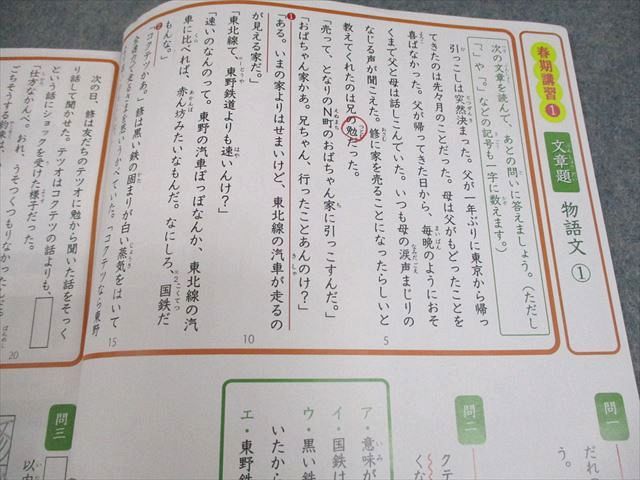 春期講習❶
文章題 物語文①
次の文章を読んで、あとの問いに答えましょう。（ただし
「、」や「。」などの記号も一字に数えます。）
引っこしは突然決まった。父が一年ぶりに東京から帰っ
てきたのは先々月のことだった。母は父がもどったことを
喜ばなかった。父が帰ってきた日から、毎晩のようにおそ
くまで父と母は話しこんでいた。いつも母の涙声まじりの
なじる声が聞こえた。修に家を売ることになったらしいと
教えてくれたのは兄の勉だった。
「売って、となりのN町のおばちゃん家に引っこすんだ。」
「おばちゃん家かあ。兄ちゃん、行ったことあんのけ？」
❶「ある。いまの家よりはせまいけど、東北線の汽車が走るの
が見える家だ。」
「東北線て、東野鉄道よりも速いんけ？」
「速いのなんのって。東野の汽車ぽっぽなんか、東北線の汽
車に比べれば、赤ん坊みたいなもんだ。なにしろ、国鉄だ
もんな。」
❷「コクテツかあ。」修は黒い鉄の固まりが白い蒸気をはいて
次の日、修は友だちのテツオに勉から聞いた話をそっく
り話して聞かせた。テツオはコクテツの話よりも、
という話にショックを受けた様子だった。
「仕方なかんべ。おれ、うそつくつもりなかったんだ
5
10
15
20
問一
だれ
う。
問二
クテ
くな
ア・意味が
いたから
イ・国鉄は
ウ・黒い鉄
エ・東野鉄
問三
以内